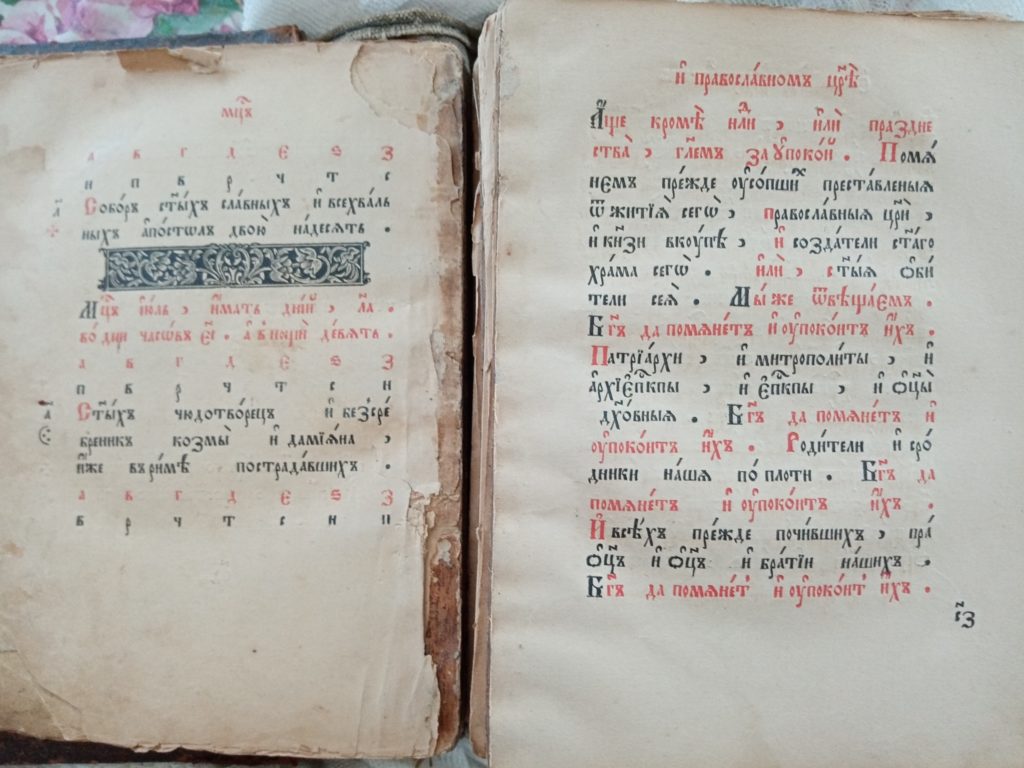 мц҃ъ
а в г д е ѕ з
н п в р ч т с
л҃ Собо́ръ ст҃ы́хъ сла́вныхъ и҆ всехва́ль
ныхъ а҆по́столъ двою̀ на́десѧть .
Мц҃ъ і҆ю́ль , и҆́мать дні́й , ла҃ .
во́ дни часѡ́въ є҃і . а҆ в нощѝ де́вѧть .
а в г д е ѕ з
п в р ч т с н
а҃ Ст҃ы́хъ чюдотво́рецъ и҆ безсре́
бреникъ козмы̀ и҆ дамїѧ́на ,
и҆́же въ ри́мѣ пострада́вшихъ .
а в г д е ѕ з
в р ч т с н п
и҆ правосла́вномъ цр҃ѣ̀
А҆́ще кромѣ̀ нд҃ли , и҆лѝ празднє
ства̀ , гл҃емъ за ᲂу҆поко́й . Помѧ́
не́мъ пре́жде ᲂу҆со́пшихъ преста́вленыѧ
ѿ житїѧ̀ сегѡ̀ , правосла́вныѧ цр҃ѝ ,
и҆ кн҃зи вкꙋ́пѣ , и҆ созда́тели ст҃а́го
хра́ма сегѡ̀ . и҆лѝ , ст҃ы́ѧ ѻ҆би́
тели сеѧ̀ . Мы́ же ѿвѣща́емъ .
Бг҃ъ да помѧне́тъ и҆ ᲂу҆поко́итъ и҆́хъ .
Патрїа́рхи , и҆ митрополи́ты , и҆
а҆рхїє҆пкⷭ҇пы , и҆ є҆пкⷭ҇пы , и҆ ѻ҆ц҃ы̀
дх҃о́вныѧ . Бг҃ъ да помѧне́тъ и҆
ᲂу҆поко́итъ и҆́хъ . Роди́тели и҆ сро́
дники на́шѧ по́ плоти . Бг҃ъ да
помѧне́тъ и҆ ᲂу҆поко́итъ и҆́хъ .
И҆ всѣ́хъ пре́жде почи́вшихъ , пра́
ѻ҆ц҃ъ и҆ ѻ҆ц҃ъ и҆ бра́тїи на́шихъ .
Бг҃ъ да помѧне́тъ и҆ ᲂу҆поко́итъ и҆́хъ .